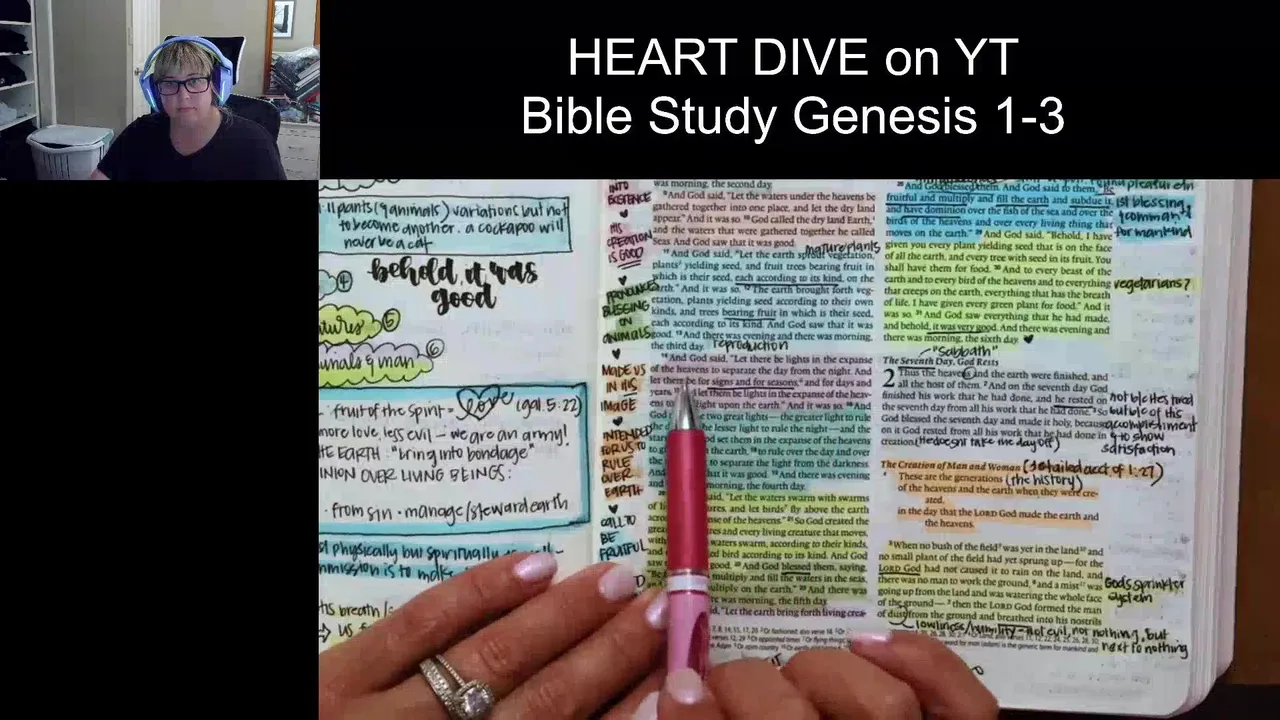 HEART DIVE on YT
Bible Study Genesis 1-3
11 plants (& animals) variations but not
to become another. a cockapoo will
never be a cat
④
behold, it was
good
⑤
animals & man ⑥
fruit of the Spirit = love (gal. 5:22)
more love, less evil – we are an army!
THE EARTH: "bring into bondage"
DOMINION OVER LIVING BEINGS:
from sin · manage/steward earth
physically but spiritually
his breath
INTO
EXISTENCE
HIS
CREATION
IS GOOD
PRONOUNCES
BLESSING
ON
ANIMALS
MADE US
IN HIS
IMAGE
INTENDED
FOR US TO
RULE
OVER
EARTH
CALL TO
BE
FRUITFUL
was morning, the second day.
9 And God said, "Let the waters under the heavens be
gathered together into one place, and let the dry land
appear." And it was so. 10 God called the dry land Earth,
and the waters that were gathered together he called
Seas. And God saw that it was good.
mature plants
11 And God said, "Let the earth sprout vegetation,
plants yielding seed, and fruit trees bearing fruit in
which is their seed, each according to its kind, on the
earth." And it was so. 12 The earth brought forth veg-
etation, plants yielding seed according to their own
kinds, and trees bearing fruit in which is their seed,
each according to its kind. And God saw that it was
good. 13 And there was evening and there was morning,
the third day.
reproduction
14 And God said, "Let there be lights in the expanse
of the heavens to separate the day from the night. And
let them be for signs and for seasons, and for days and
years, let them be lights in the expanse of the heav-
ens to light upon the earth." And it was so. And
God two great lights—the greater light to rule
the lesser light to rule the night—and the
stars. God set them in the expanse of the heavens
to rule over the day and over
to separate the light from the darkness.
And there was evening
morning, the fourth day.
"Let the waters swarm with swarms
and let birds fly above the earth
expanse of the heavens." 21 So God created the
great and every living creature that moves,
waters swarm, according to their kinds,
bird according to its kind. And God
saw good. And God blessed them, saying,
"Be multiply and fill the waters in the seas,
multiply on the earth." And there was
morning, the fifth day.
said, "Let the earth bring forth living crea-
And God blessed them. And God said to them, "Be
fruitful and multiply and fill the earth and subdue it,
and have dominion over the fish of the sea and over the
birds of the heavens and over every living thing that
moves on the earth." 29 And God said, "Behold, I have
given you every plant yielding seed that is on the face
of all the earth, and every tree with seed in its fruit. You
shall have them for food. 30 And to every beast of the
earth and to every bird of the heavens and to everything
that creeps on the earth, everything that has the breath
of life, I have given every green plant for food." And it
was so. 31 And God saw everything that he had made,
and behold, it was very good. And there was evening and
there was morning, the sixth day.
1st blessing
& command
for mankind
vegetarians?
"Sabbath"
The Seventh Day, God Rests
2 Thus the heavens and the earth were finished, and
all the host of them. 2 And on the seventh day God
finished his work that he had done, and he rested on
the seventh day from all his work that he had done. 3 So
God blessed the seventh day and made it holy, because
on it God rested from all his work that he had done in
creation. (He doesn't take the day off)
not bc he's tired
but bc of his
accomplishment
& to show
satisfaction
The Creation of Man and Woman (detailed acct of 1:27)
4 These are the generations (the history)
of the heavens and the earth when they were cre-
ated,
in the day that the LORD God made the earth and
the heavens.
5 When no bush of the field was yet in the land and
no small plant of the field had yet sprung up—for the
LORD God had not caused it to rain on the land, and
there was no man to work the ground, 6 and a mist was
going up from the land and was watering the whole face
of the ground— 7 then the LORD God formed the man
of dust from the ground and breathed into his nostrils
God's sprinkler
system
lowliness/humility – not evil, not nothing, but
next to nothing